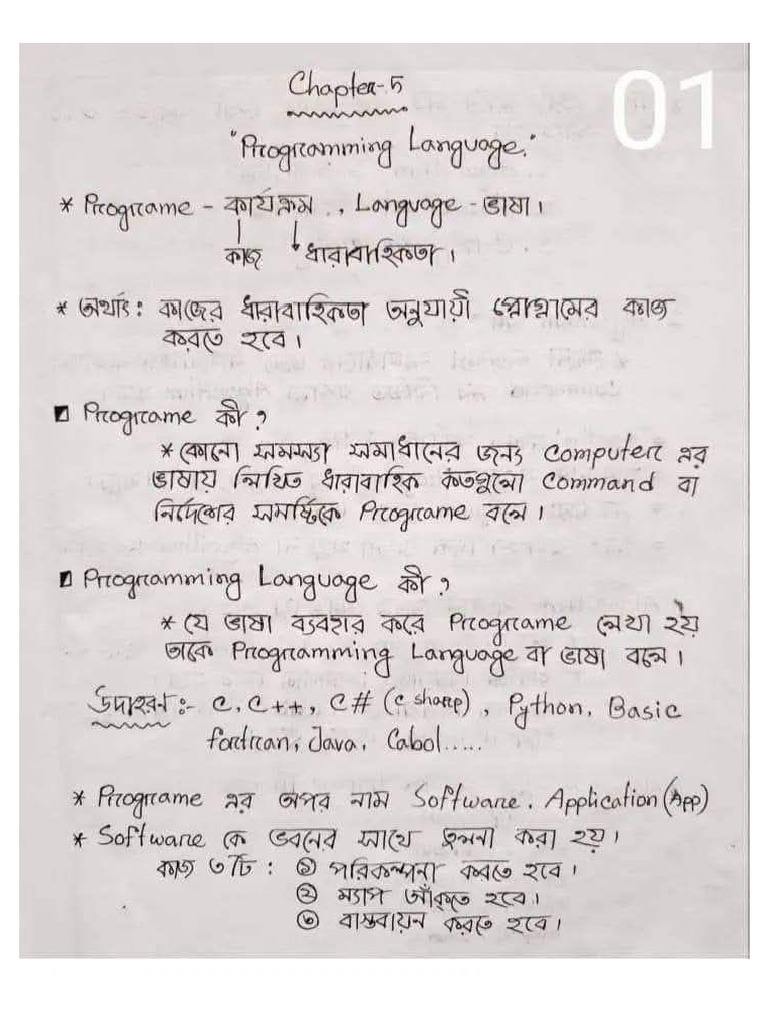 01
Chapter-5
"Programming Language."
* Programe - কার্যক্রম , Language - ভাষা।
কাজ ধারাবাহিকতা।
* অর্থাৎ : কাজের ধারাবাহিকতা অনুযায়ী প্রোগ্রামের কাজ
করতে হবে।
Programe কী ?
* কোনো সমস্যা সমাধানের জন্য Computer এর
ভাষায় লিখিত ধারাবাহিক কতগুলো Command বা
নির্দেশের সমষ্টিকে Programe বলে।
Programming Language কী ?
* যে ভাষা ব্যবহার করে Programe লেখা হয়
তাকে Programming Language বা ভাষা বলে।
উদাহরণ :- C, C++, C# (C sharp), Python, Basic
fortran, Java, Cabol.....
* Programe এর অপর নাম Software. Application (App)
* Software কে ভবনের সাথে তুলনা করা হয়।
কাজ ৩টি : ১ পরিকল্পনা করতে হবে।
২ ম্যাপ আঁকতে হবে।
৩ বাস্তবায়ন করতে হবে।